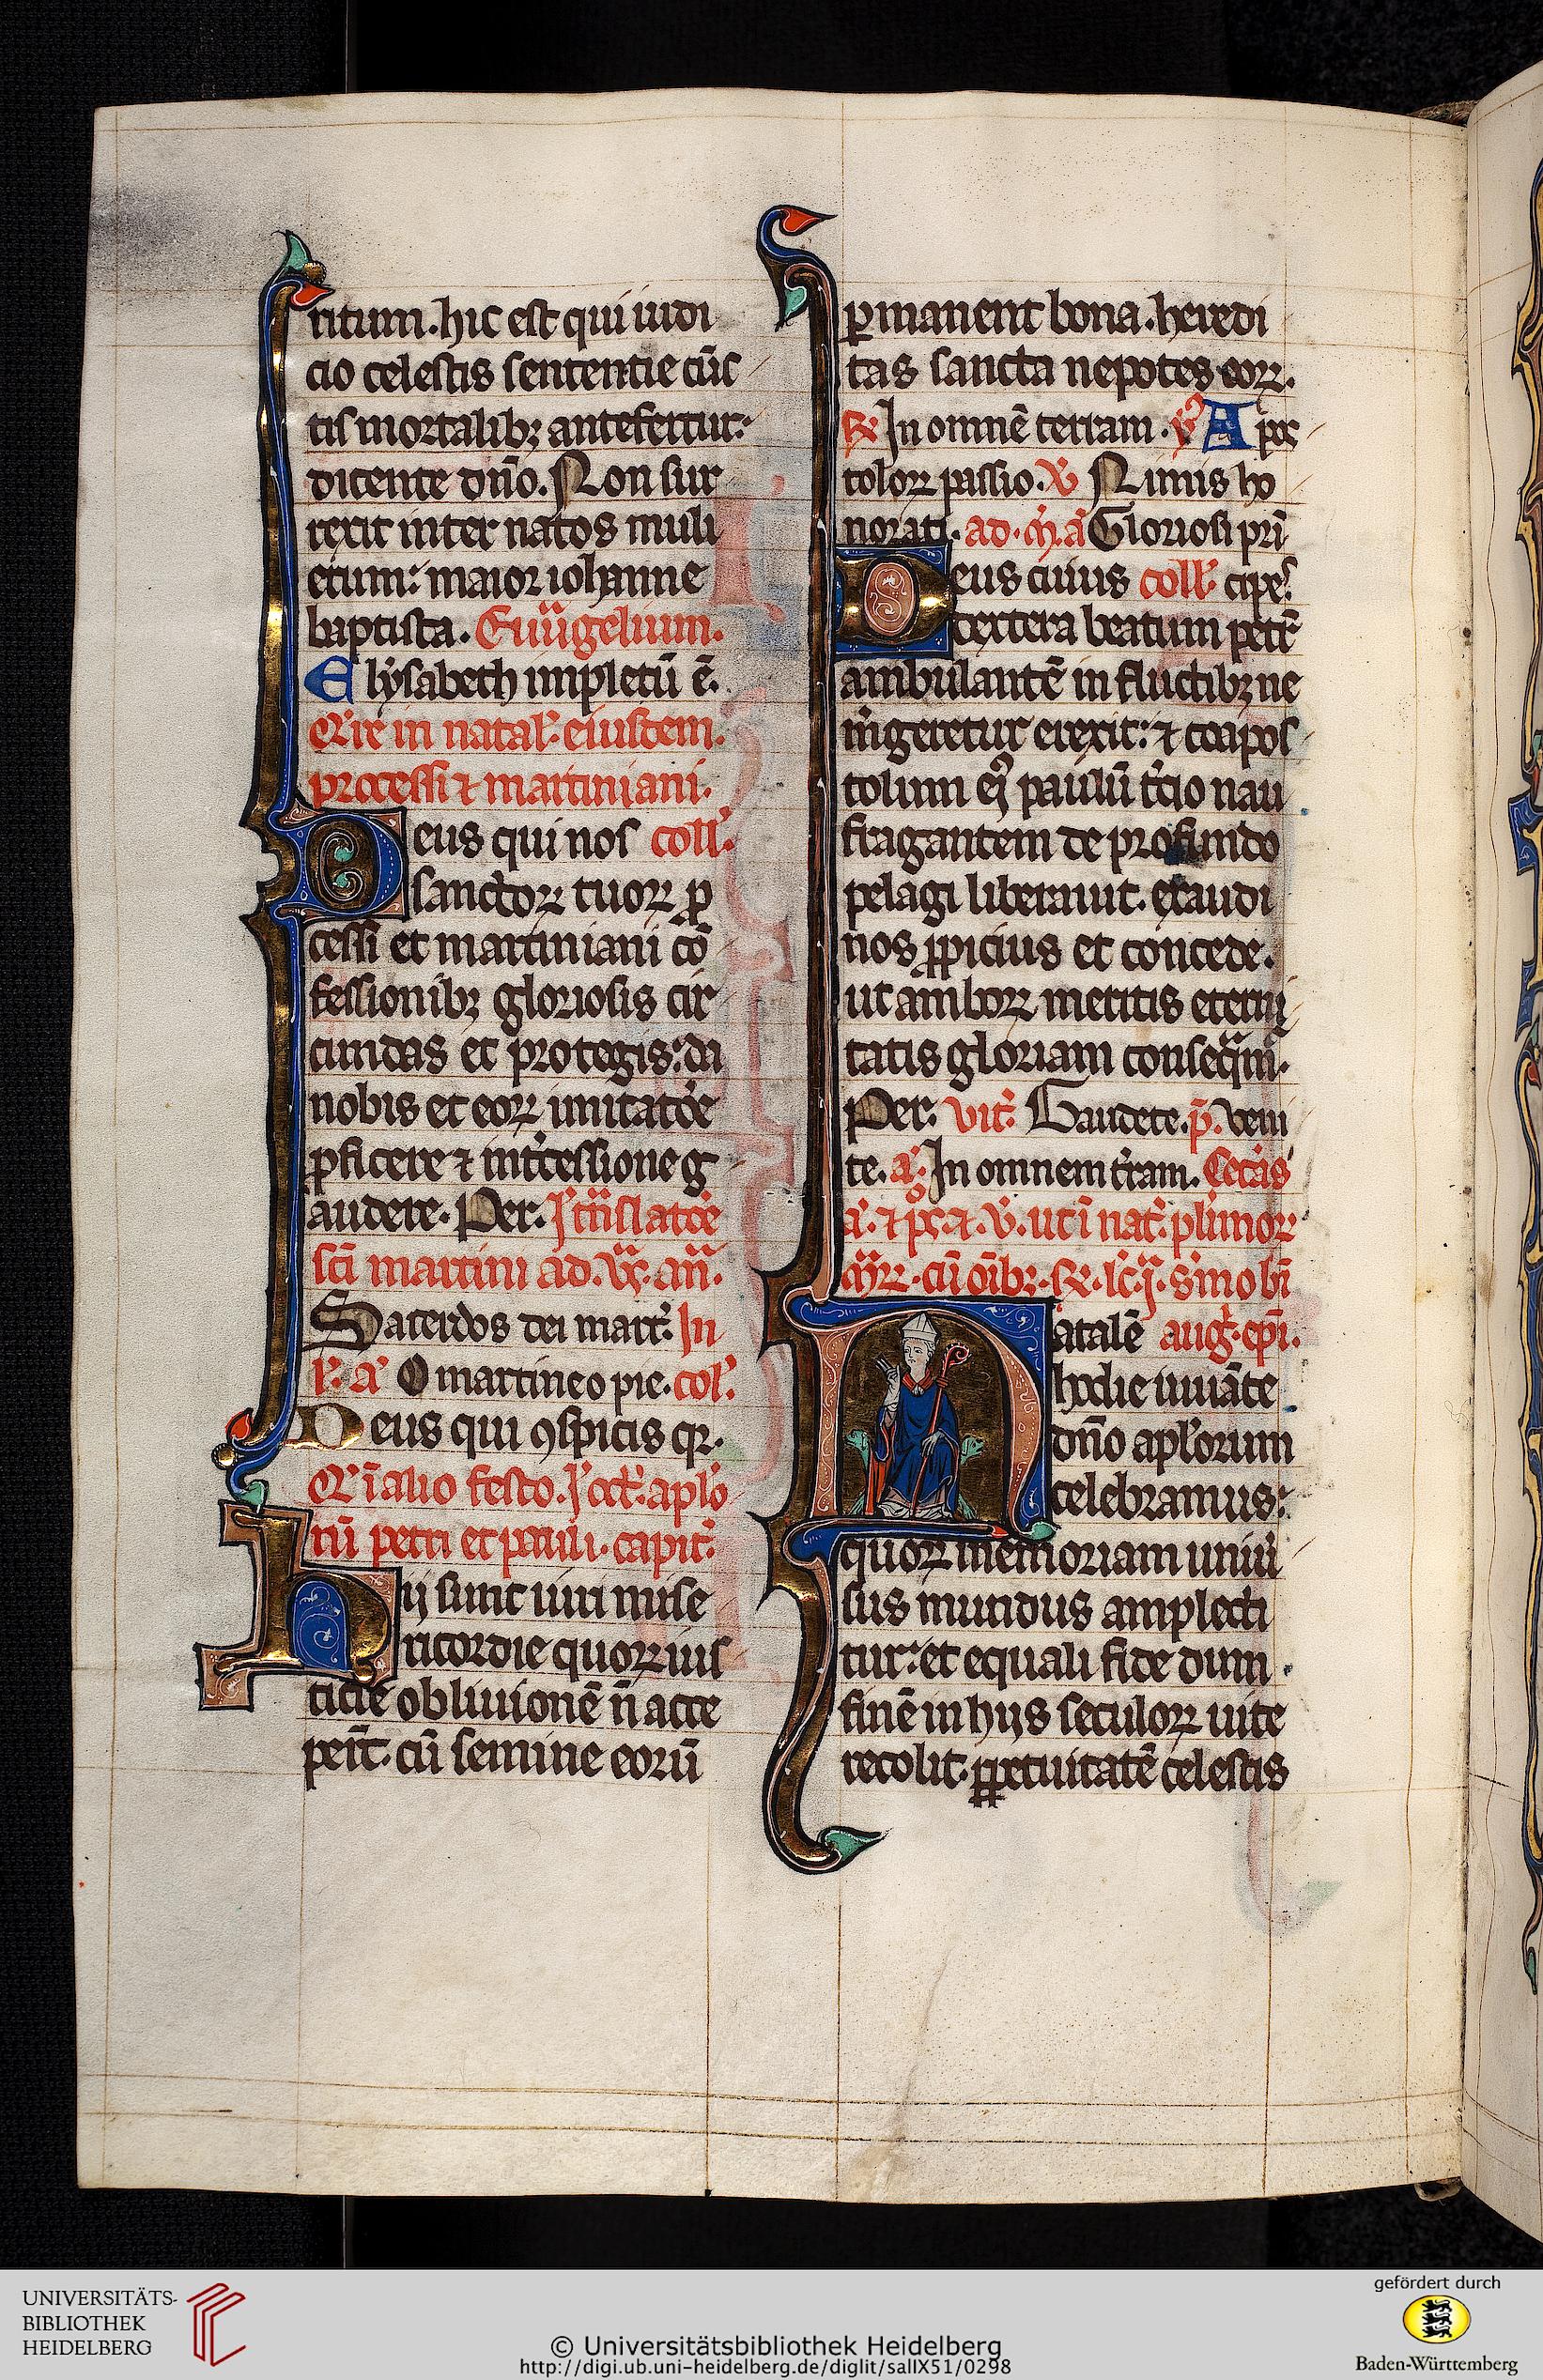 ritum. hic est qui iudi
cio celestis sententie cūc
tis mortalibꝫ antefertur:
dicente dn̄o. Non sur
rexit inter natos muli
erum: maior iohanne
baptista. Euu̅gelium.
Elysabeth impletū ē.
Qͥre in natal' eiusdem.
processi ⁊ martiniani.
Deus qui nos coll'.
sanctoꝝ tuoꝝ ꝓ
cessi et martiniani cō
fessionibꝫ gloriosis cir
cundas et protegis: da
nobis et eoꝝ imitatōe
ꝓficere ⁊ int̉cessione g
audere. Per. I t̄nslatōe
sc̄i martini ad. vꝭ. an̄.
Sacerdos dei mart'. In
l'. a' O martine o pie. col'.
Deus qui ꝯspicis qꝛ.
Qͥ ī alio festo. I oct'. aplo
rū petri et pauli. capit'.
Hij sunt uiri mise
ricordie quoꝝ ius
ticie obliuionē n̄ acce
per̄t. cū semine eorū
ꝑmanent bona. heredi
tas sancta nepotes eoꝝ.
℟ In omnē terram. ℣ A pos
toloꝝ passio. ℣ Nimis ho
norati. ad. m̉. a' Gloriosi pri
Deus cuius coll'. cipes
dextera beatum petr̄
ambulantē in fluctibꝫ ne
m̉geretur erexit: ⁊ coapos
tolum eiꝰ paulū t̉cio nau
fragantem de profundo
pelagi liberauit. exaudi
nos ꝓpicius et concede.
ut amboꝝ meritis eterni
tatis gloriam conseqͣm̉.
Per. vit'. Gaudete. p̄. Veni
te. a'. In omnem t̉ram. Cet̉as
a'. ⁊ pͦs. ⁊. ℣. ut ī nat'. plimoꝝ
m̉ꝝ. cū oīibꝫ. ℟. lc̄. j. s̉mo bī
Natalē aug'. epī.
hodie iuuāte
dn̄o apl'orum
celebramus:
quoꝝ memoriam uniū
sus mundus amplecti
tur: et equali fide dum
finē in hijs seculoꝝ uite
recolit. ꝑpetuitatē celestis
UNIVERSITÄTS-
BIBLIOTHEK
HEIDELBERG
© Universitätsbibliothek Heidelberg
http://digi.ub.uni-heidelberg.de/diglit/salIX51/0298
gefördert durch
Baden-Württemberg